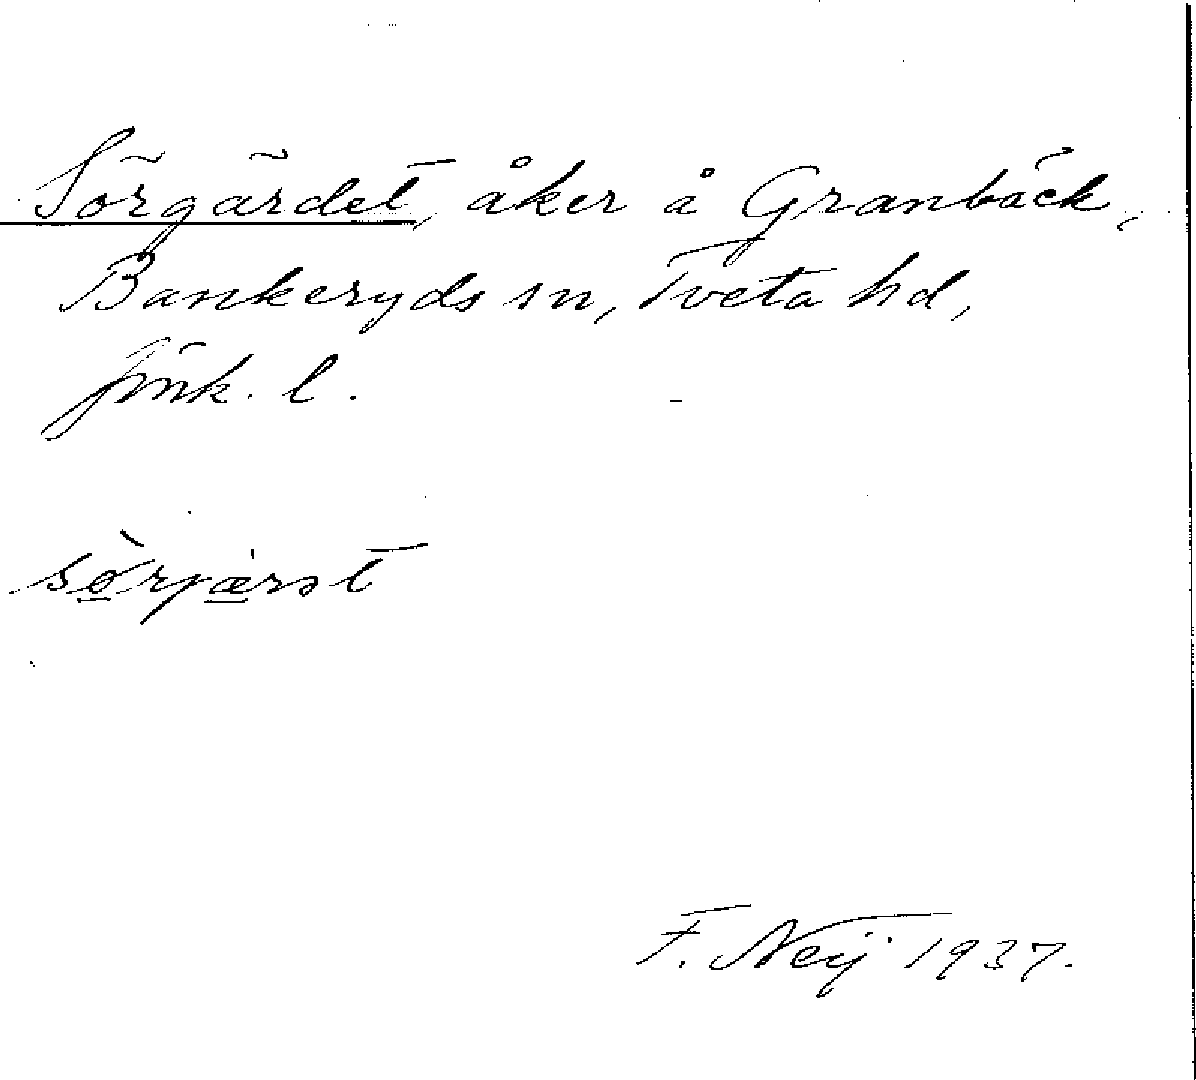 Sörgärdet, åker å Granbäck,
Bankeryds sn, Tveta hd,
Jönk. l.
F. Neij 1937.